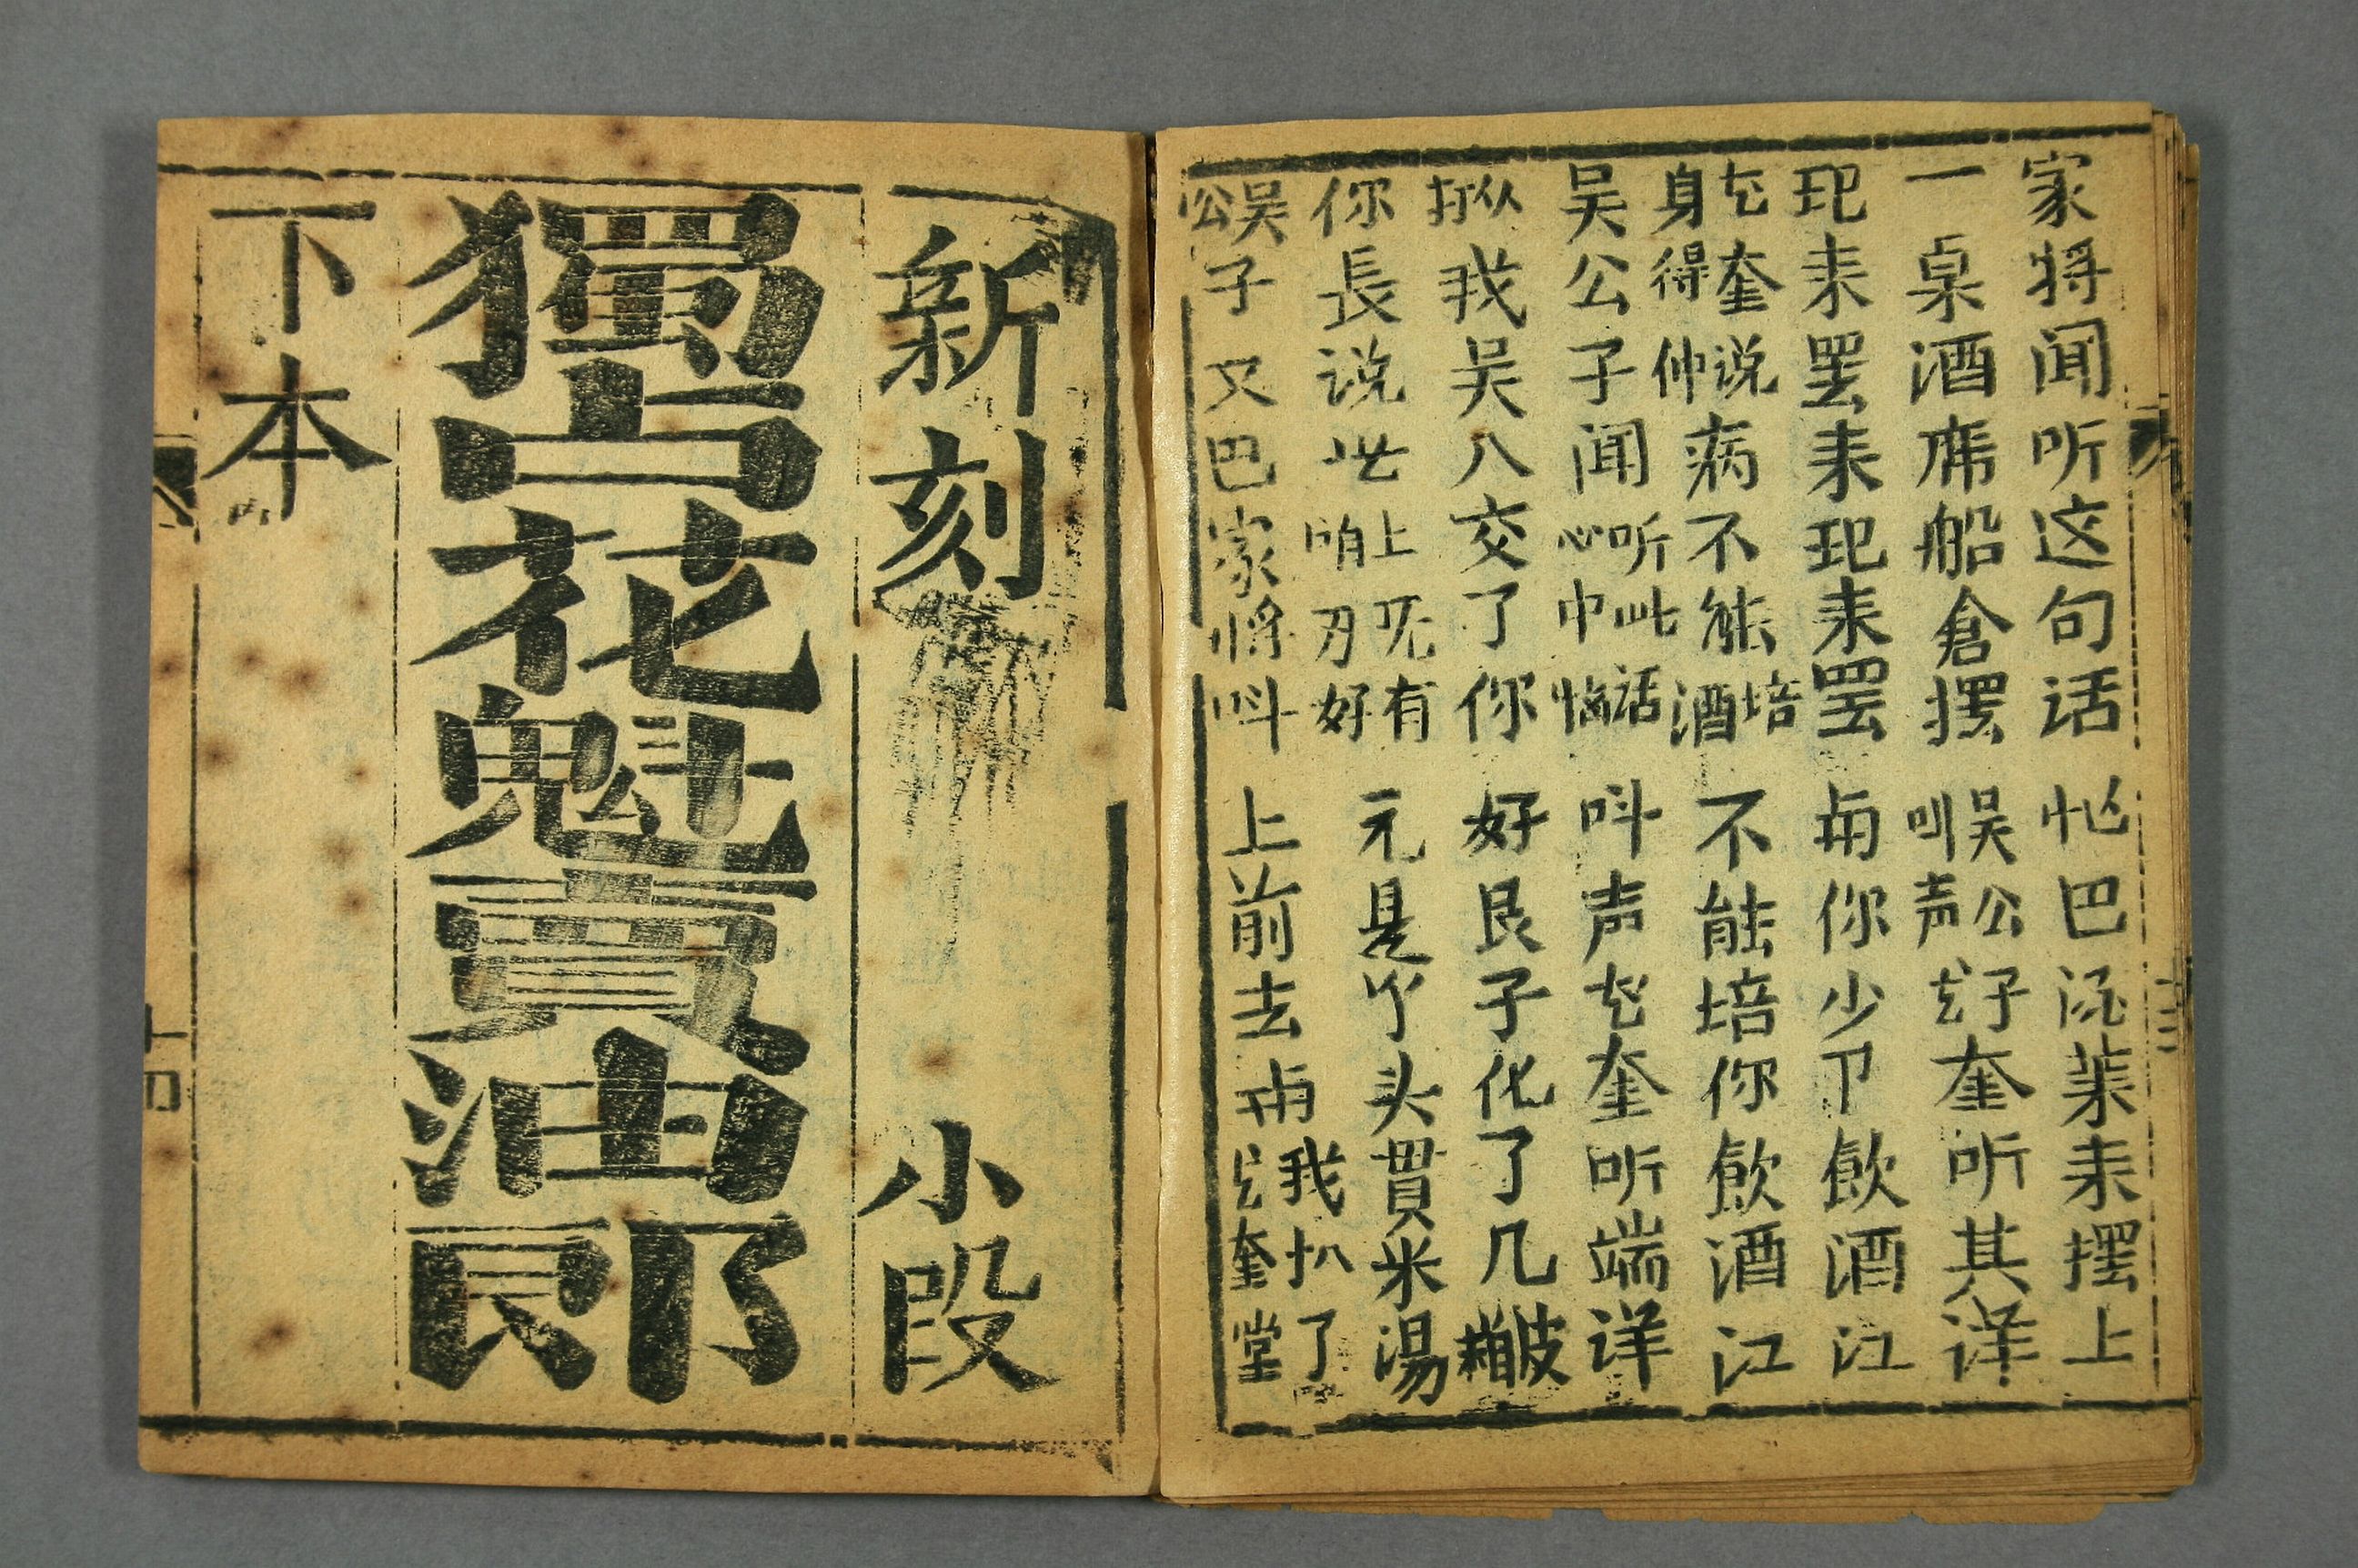 家将闻听这句话 忙巴酒菜耒摆上
一桌酒席船倉摆 吴公子叫声花奎听其详
玘耒罢耒玘耒罢 与你少卩飲酒江
花奎说身得仲病不能培酒 不能培你飲酒江
吴公子闻听此话心中恼 叫声花奎听端详
从打我吴八交了你 好艮子化了几皮箱
你長说世上旡有咱刃好 元是个头貫米湯
吴公子又巴家将叫 上前去与我扒了花奎堂
新刻 小段
獨占花魁賣油郎
下本
十四